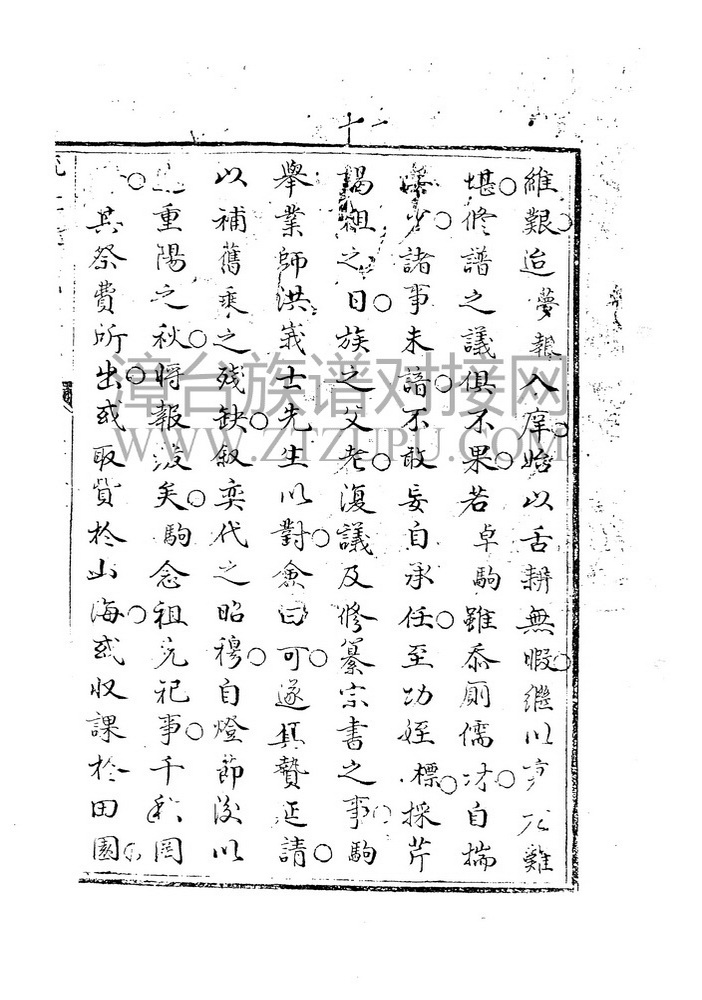 十一
維艱迨夢報入庠始以舌耕無暇繼以亨冗難
堪修譜之議俱不果若卓駒雖忝廁儒才自揣
少諸事未諳不敢妄自承任至功姪標採芹
謁祖之日族之父老復議及修纂宗書之事駒
舉業師洪莪士先生以對僉曰可遂具贄延請
以補舊乘之殘缺叙奕代之昭穆自燈節後以
重陽之秋將報竣矣駒念祖先祀事千秋罔
其祭費所出或取貲於山海或收課於田園
漳台族谱对接网
WWW.ZTZUPU.COM